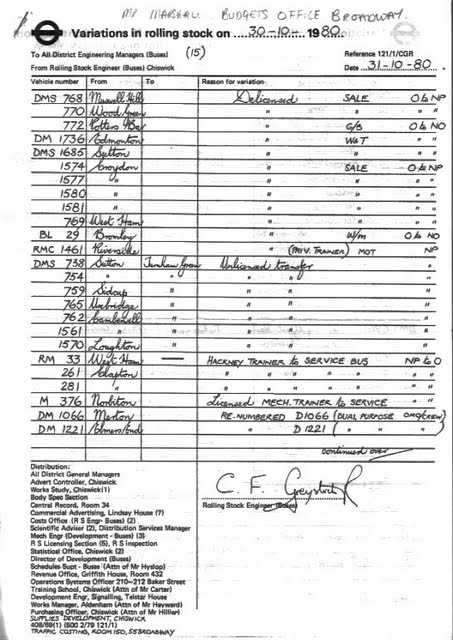 MR MARSHALL BUDGETS OFFICE BROADWAY
Variations in rolling stock on 30-10- 1980
To All District Engineering Managers (Buses) (15) Reference 121/1/CGR
From Rolling Stock Engineer (Buses) Chiswick Date 31-10-80
Vehicle number From To Reason for variation
DMS 768 Muswell Hill Delicensed SALE O to NP
770 Wood Green " " " "
772 Potters Bar " G/B O to NO
DM 1736 Edmonton " W&T " "
DMS 1685 Sutton " " "
1574 Croydon " SALE O to NP
1577 " " " " "
1580 " " " " "
1581 " " " " "
769 West Ham " " " "
BL 29 Bromley " W/m O to NO
RMC 1461 Riverside " (PRIV. TRAINER) MOT NP
DMS 738 Sutton Turnham Green Unlicensed transfer "
754 " " " " "
759 Sidcup " " " "
765 Uxbridge " " " "
762 Camberwell " " " "
1561 " " " " "
1570 Loughton " " " "
RM 33 West Ham — HACKNEY TRAINER to SERVICE BUS NP to O
261 Clapton " " " " " "
281 " " " " " " "
M 376 Norbiton Licensed MECH. TRAINER to SERVICE " "
DM 1066 Merton RE-NUMBERED D1066 (DUAL PURPOSE OMO/CREW)
DM 1221 Elmers End " D 1221 ( " " " )
continued over
Distribution:
All District General Managers
Advert Controller, Chiswick
Works Study, Chiswick(1)
Body Spec Section
Central Record, Room 34
Commercial Advertising, Lindsay House (7)
Costs Office (R S Engr- Buses) (2)
Scientific Adviser (2), Distribution Services Manager
Mech Engr (Development - Buses) (3)
R S Licensing Section (5), R S Inspection
Statistical Office, Chiswick (2)
Director of Development (Buses)
Schedules Supt - Buses (Attn of Mr Hyslop)
Revenue Office, Griffith House, Room 432
Operations Systems Officer 210-212 Baker Street
Training School, Chiswick (Attn of Mr Carter)
Development Engr, Signalling, Telstar House
Works Manager, Aldenham (Attn of Mr Hayward)
Purchasing Officer, Chiswick (Attn of Mr Hillier)
SUPPLIES DEVELOPMENT, CHISWICK
408/69(1) (500 2/79 121/1)
TRAFFIC COSTING, ROOM 150, 55 BROADWAY
C. F.
Rolling Stock Engineer (Buses)